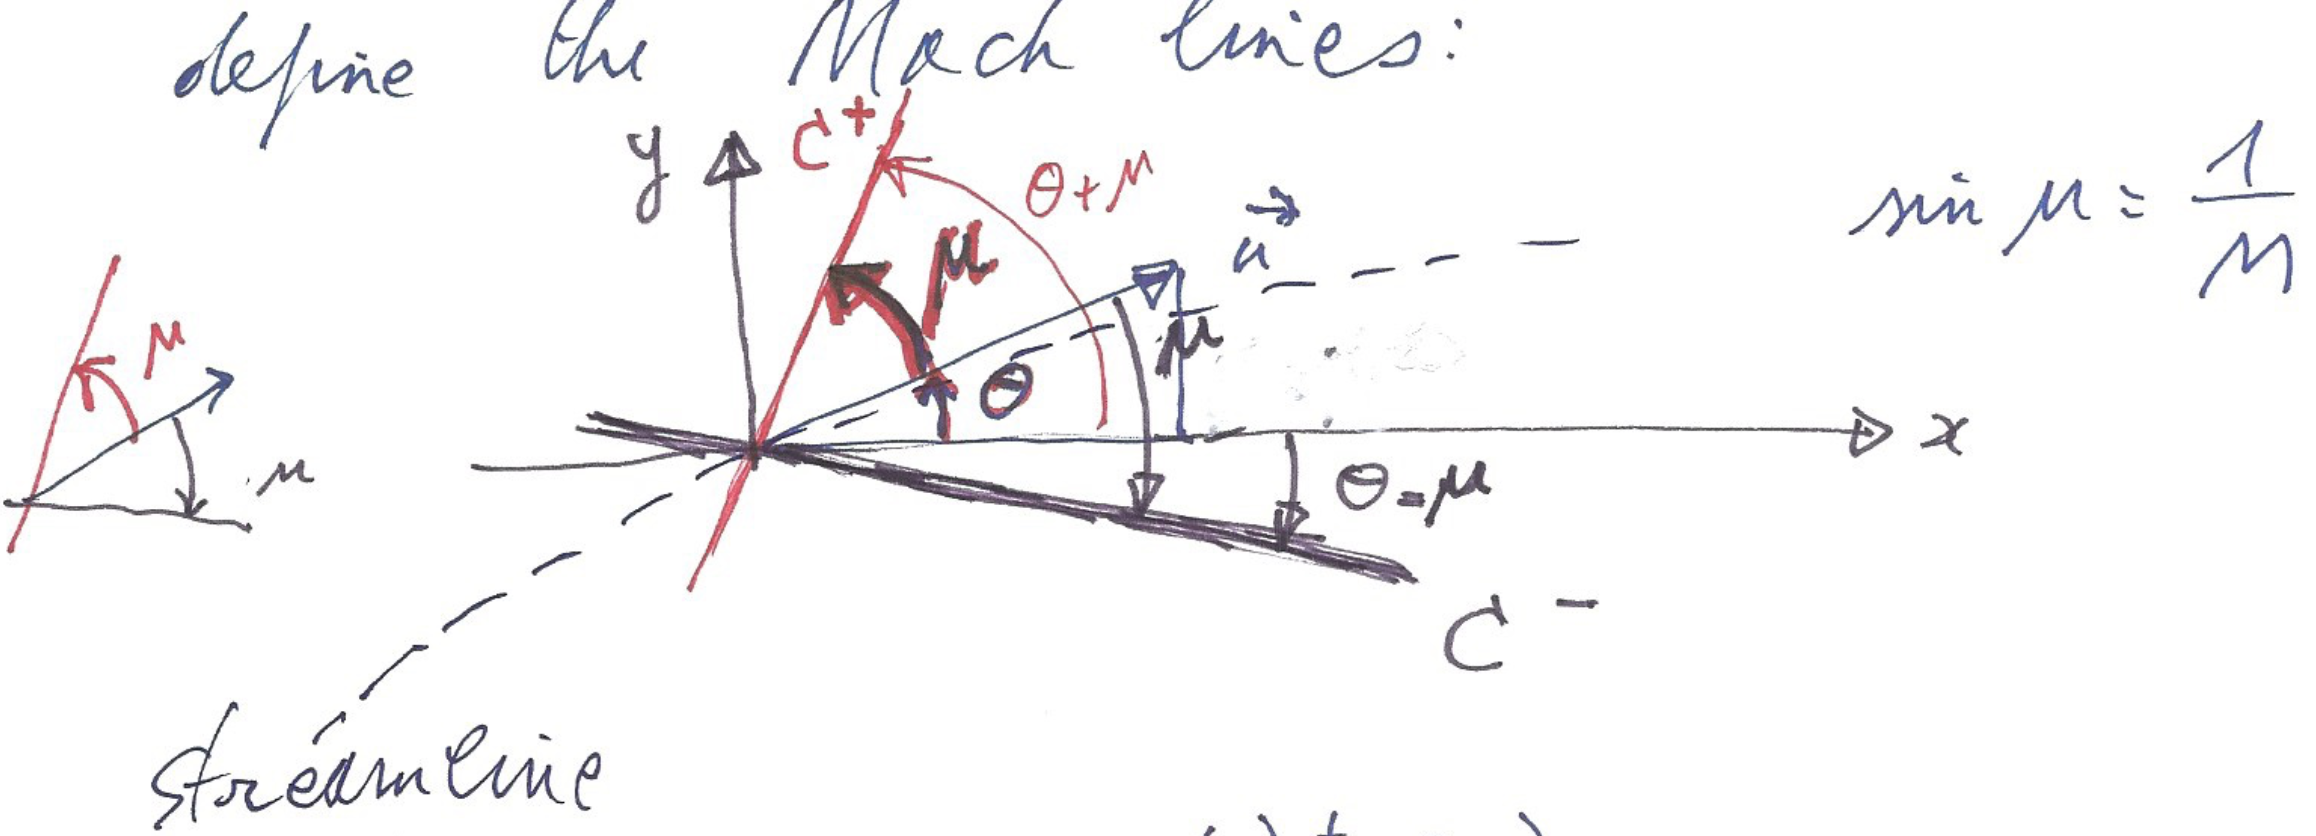 define the Mach lines:
y
C⁺
θ+μ
sin μ = 1/M
μ
u⃗
μ
μ
θ
x
μ
θ-μ
C⁻
streamline